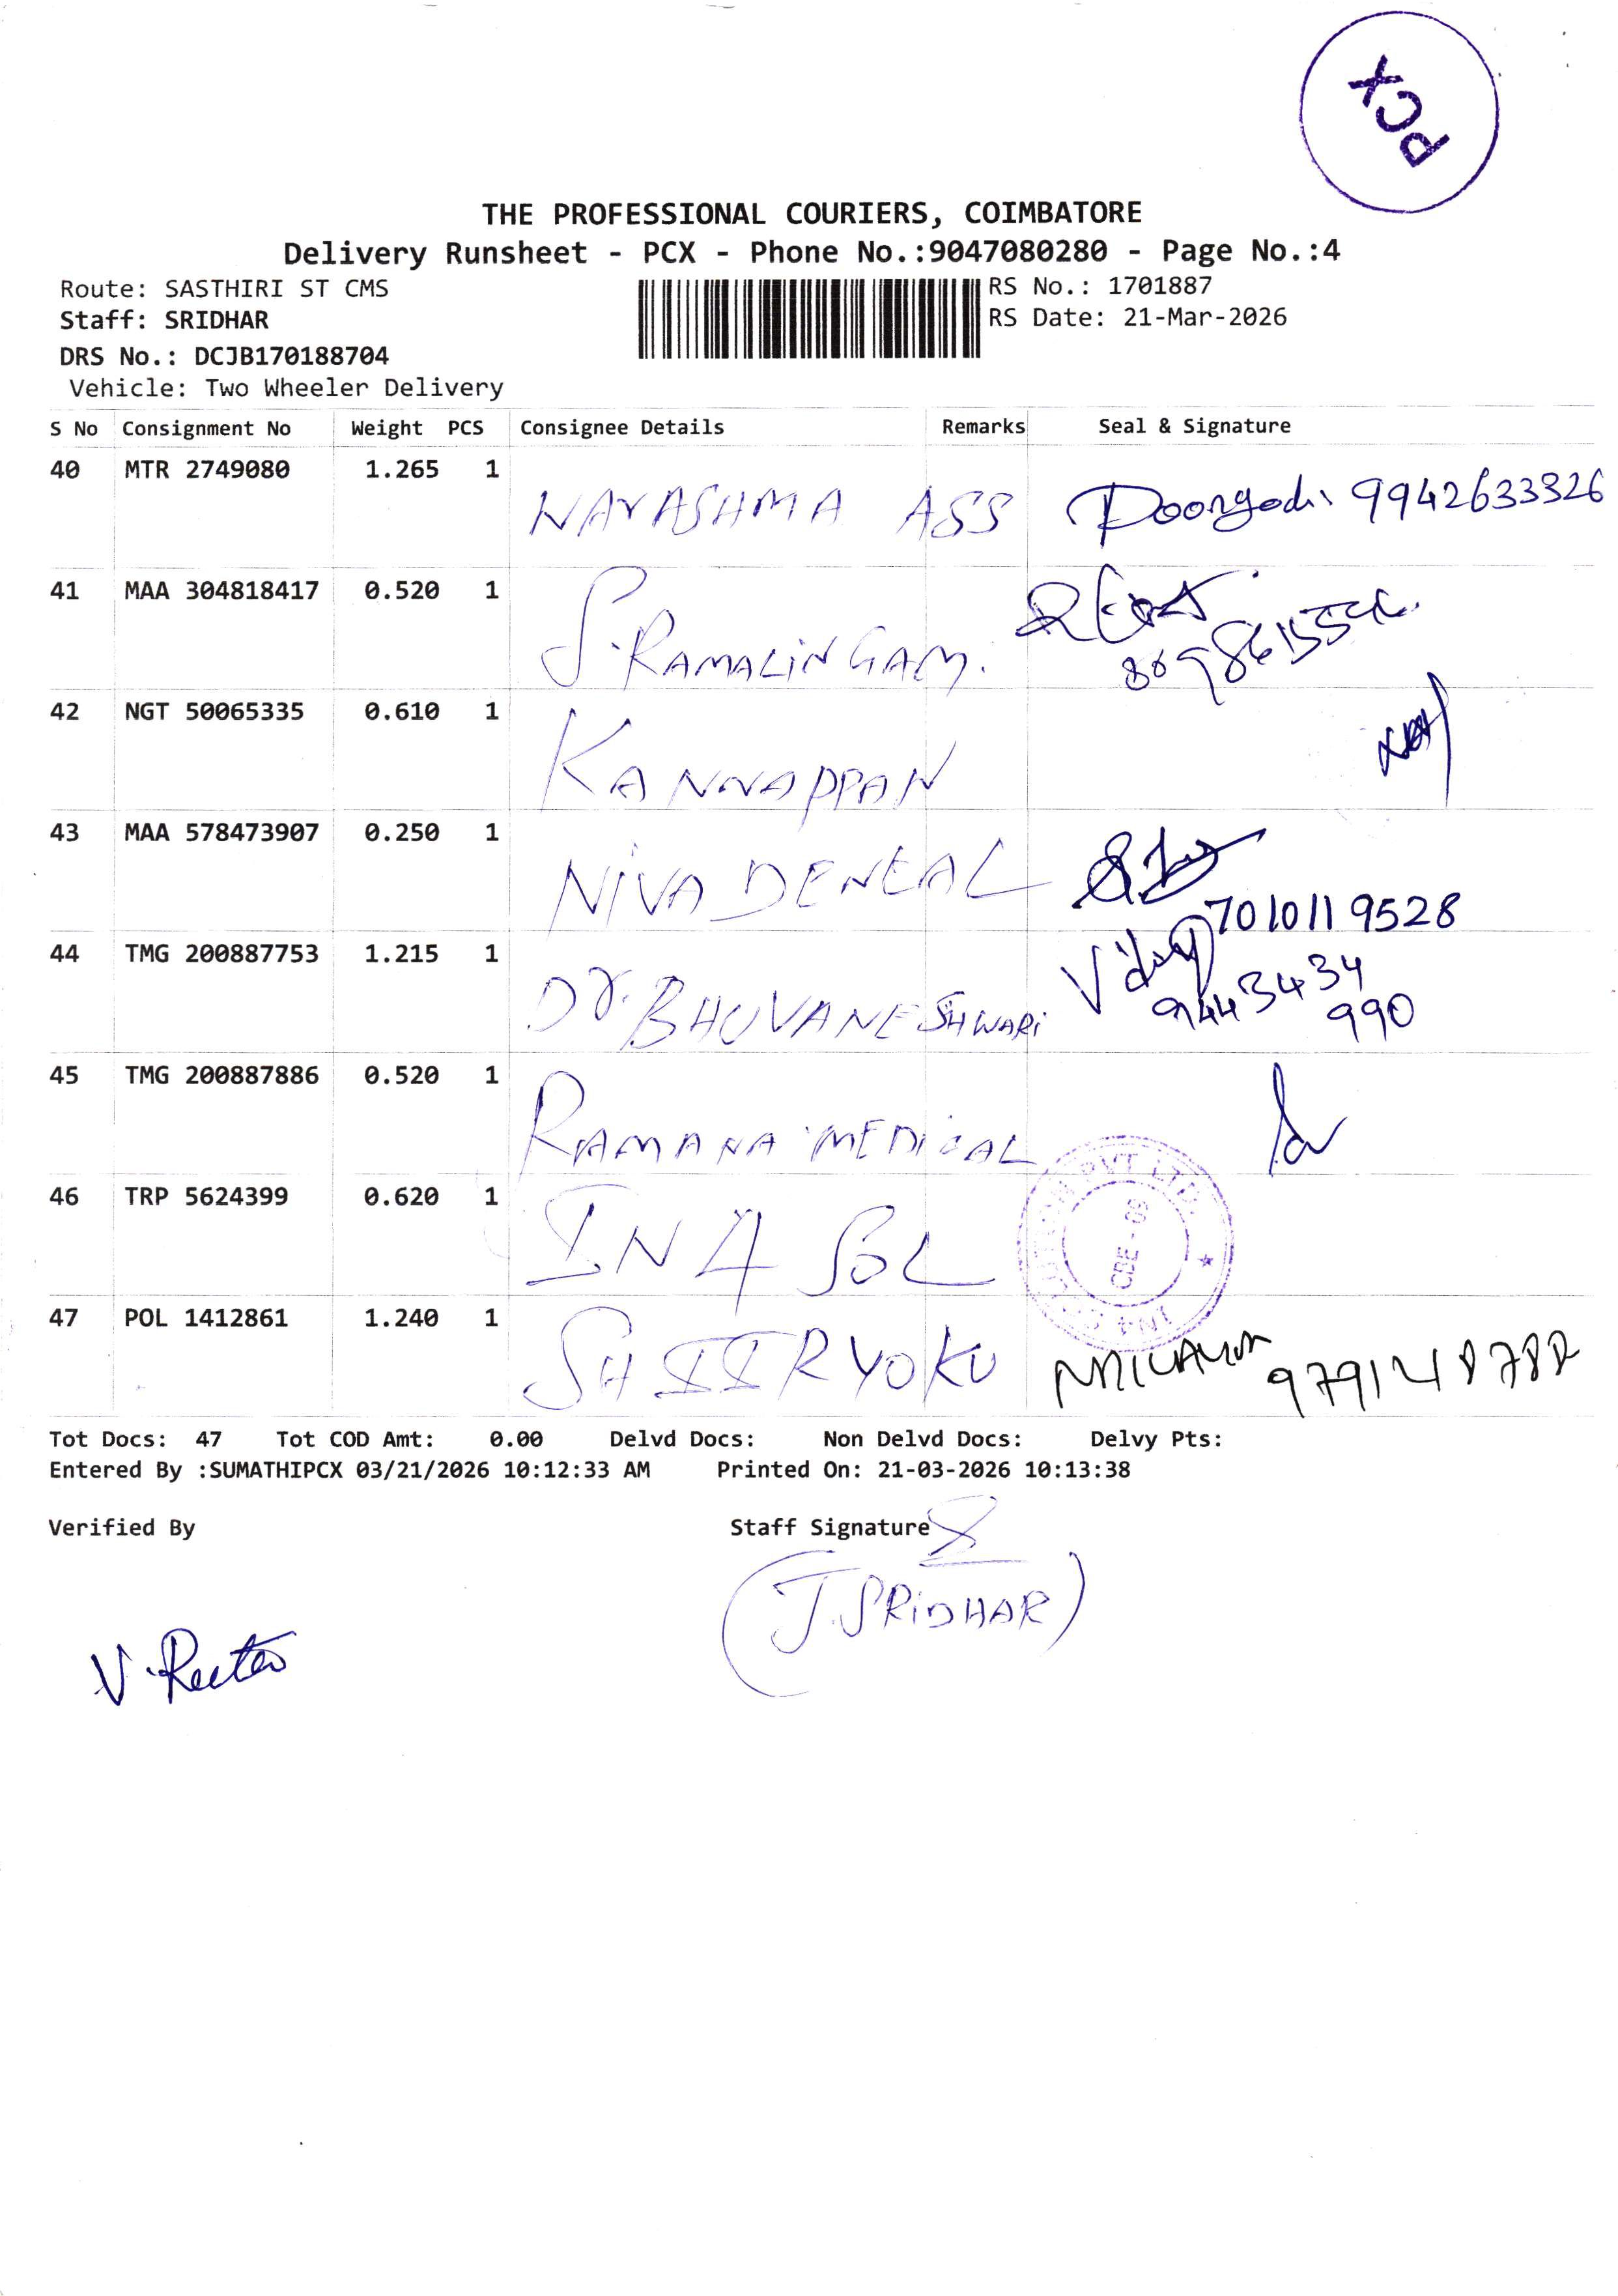 PCX
THE PROFESSIONAL COURIERS, COIMBATORE
Delivery Runsheet - PCX - Phone No.:9047080280 - Page No.:4
Route: SASTHIRI ST CMS
RS No.: 1701887
Staff: SRIDHAR
RS Date: 21-Mar-2026
DRS No.: DCJB170188704
Vehicle: Two Wheeler Delivery
S No Consignment No Weight PCS Consignee Details Remarks Seal & Signature
40 MTR 2749080 1.265 1 NAYASHMA ASS Poongodi 9942633326
41 MAA 304818417 0.520 1 S.RAMALINGAM.
42 NGT 50065335 0.610 1 KANNAPPAN
43 MAA 578473907 0.250 1 NIVA DENTAL 7010119528
44 TMG 200887753 1.215 1 Dr. BHUVANESHWARI 9443434
990
45 TMG 200887886 0.520 1 RAMANA MEDICAL
46 TRP 5624399 0.620 1 IN4 SOL PVT LTD. CBE - 09
47 POL 1412861 1.240 1 SHIIRYOKU
Tot Docs: 47 Tot COD Amt: 0.00 Delvd Docs: Non Delvd Docs: Delvy Pts:
Entered By :SUMATHIPCX 03/21/2026 10:12:33 AM Printed On: 21-03-2026 10:13:38
Verified By Staff Signature
(J.SRIDHAR)